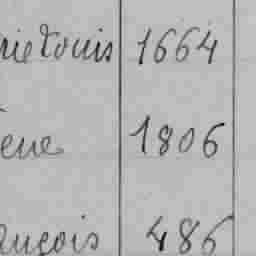 rie Louis 1664
ene 1806
ançois 486